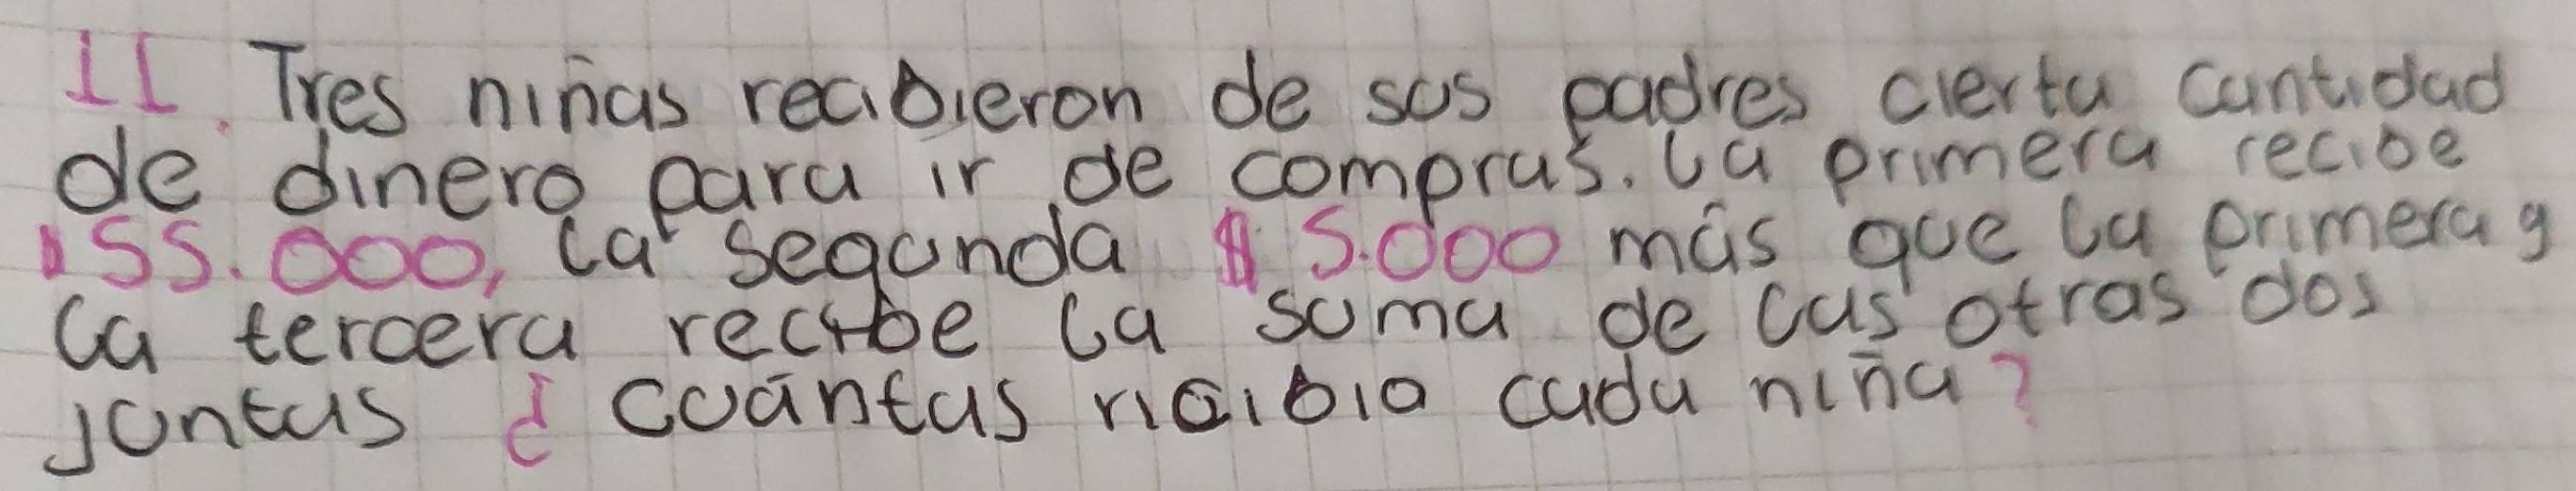 11. Tres niñas recibieron de sus padres cierta cantidad
de dinero para ir de compras. La primera recibe
$55.000, la segunda $5.000 más que la primera y
la tercera recibe la suma de las otras dos
juntas ¿ cuántas ricibio cada niña?